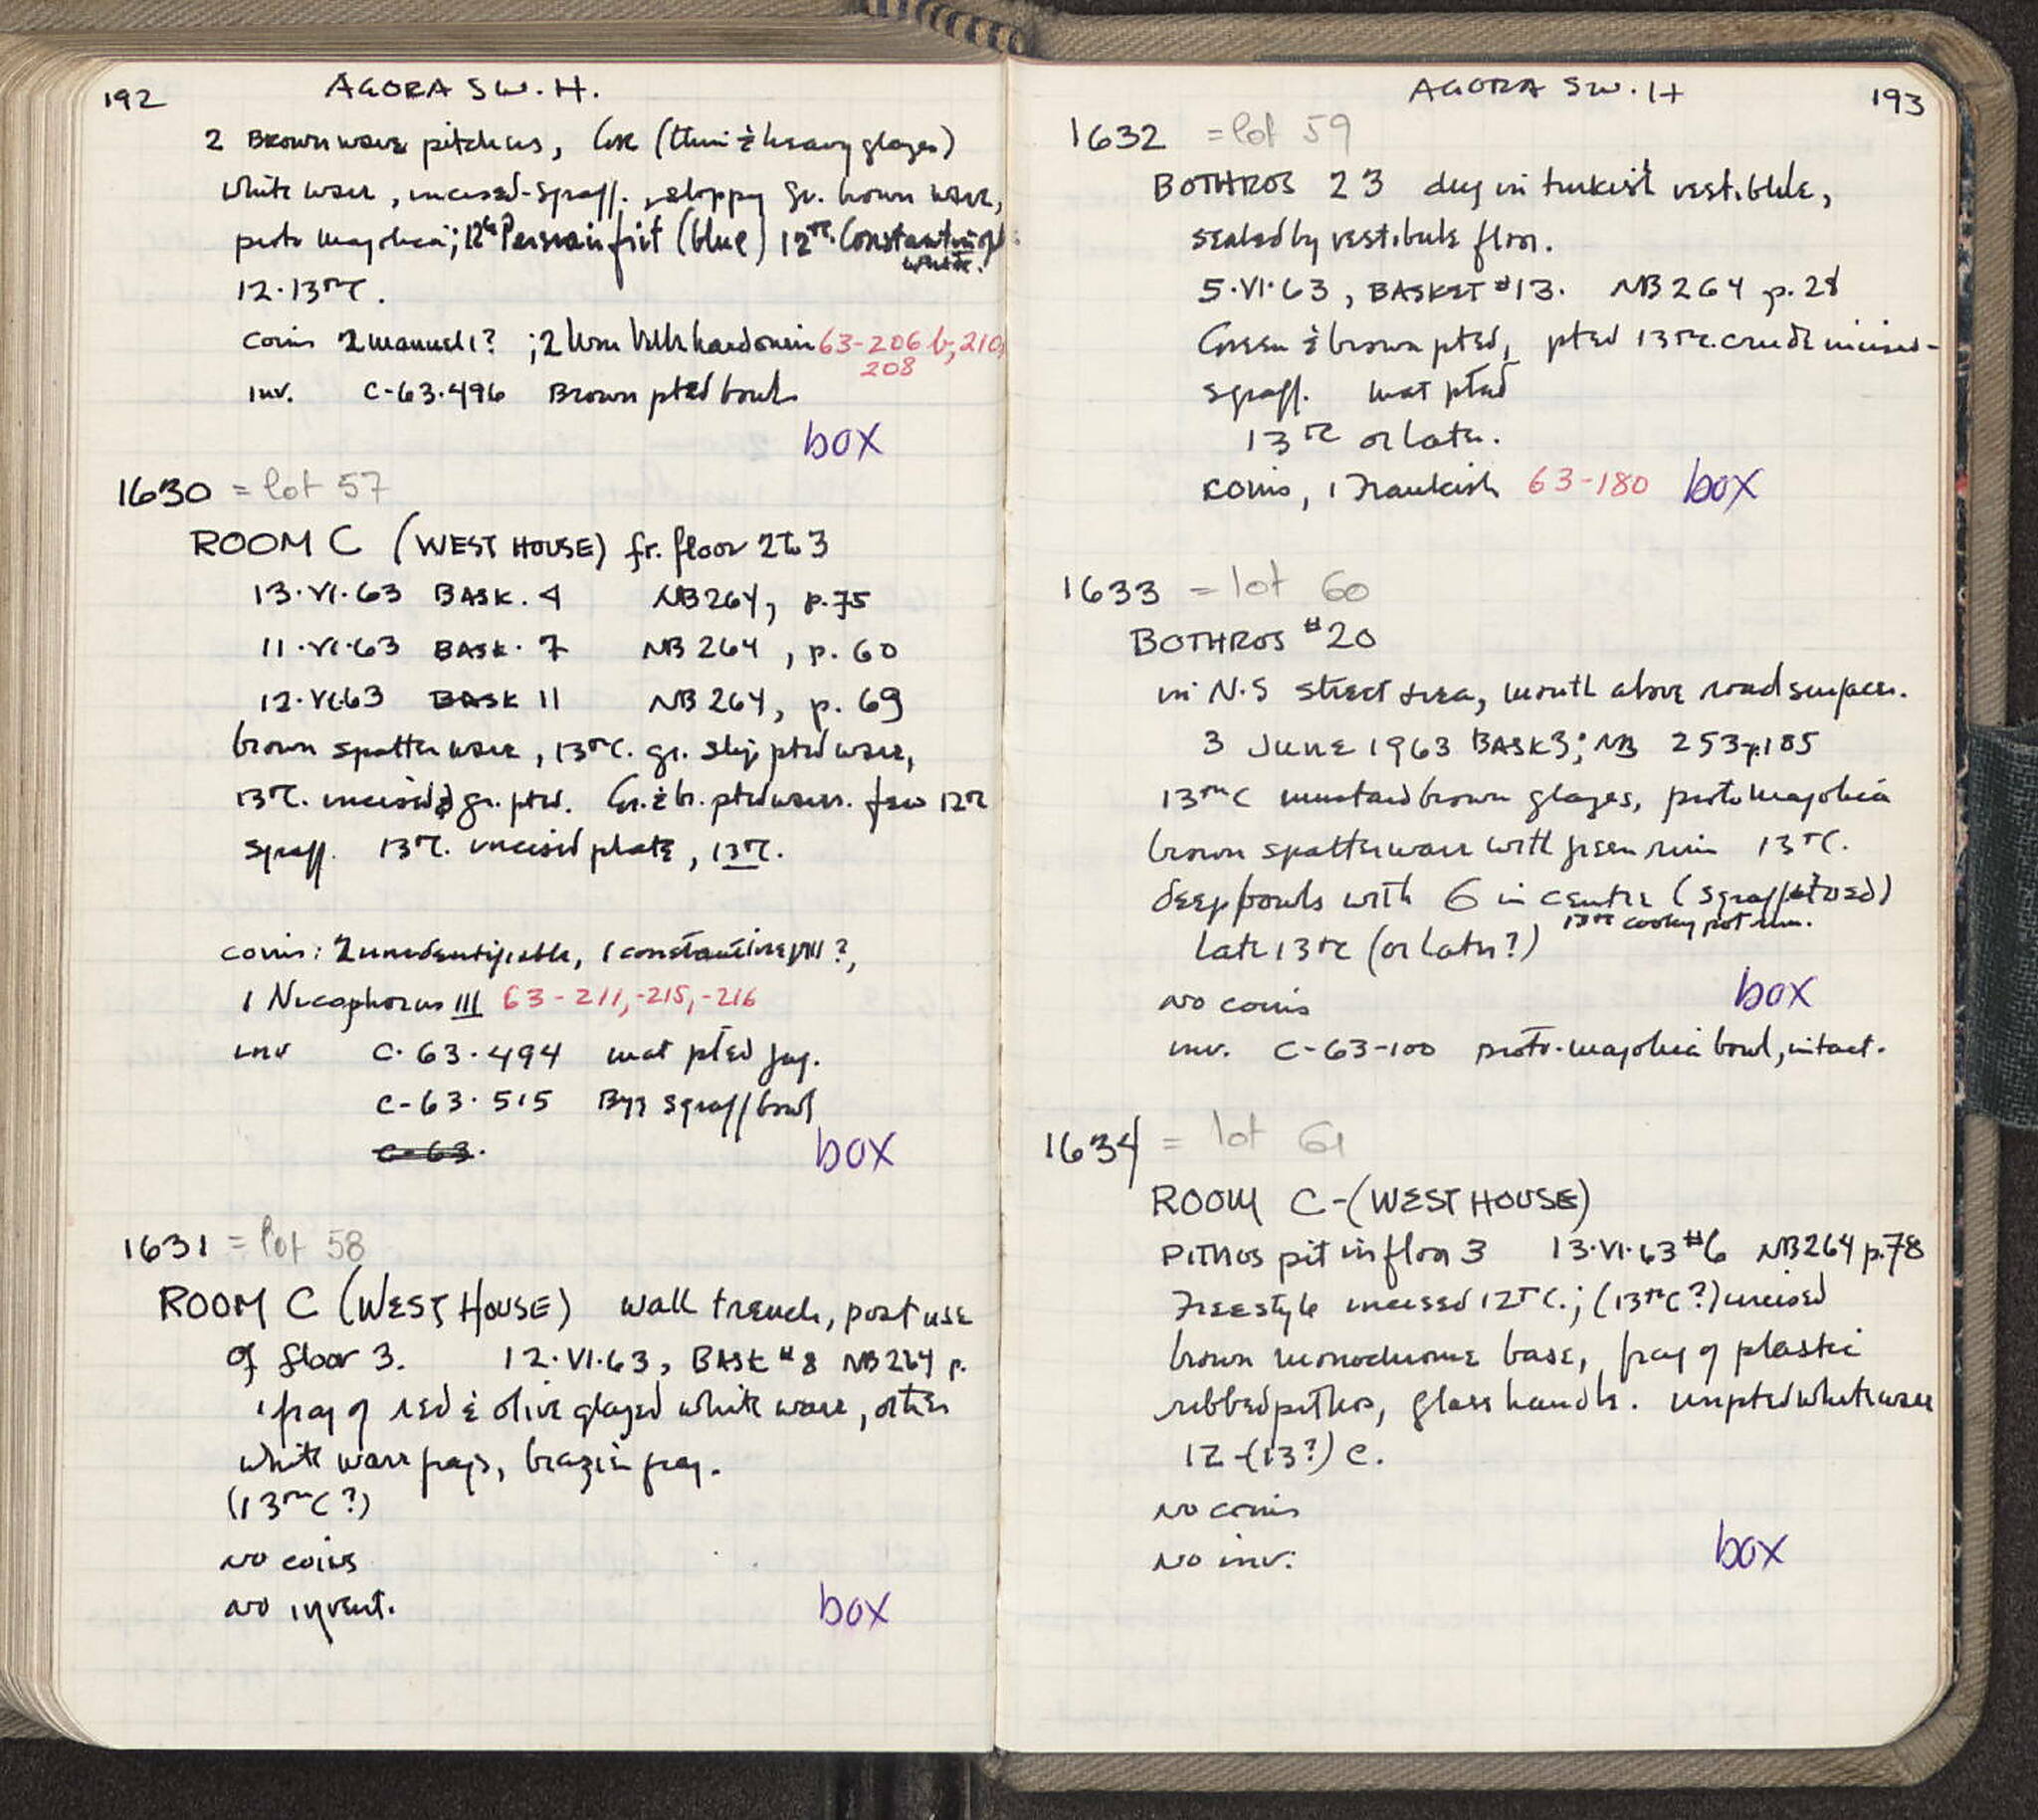 192
AGORA SW. H.
2 Brown ware pitchers, (thin & heavy glazes)
white ware, incised-sgraff., sloppy gr. brown ware,
proto majolica; 12th Persian frit (blue) 12th C. Constantinople
white.
12-13th C.
coins 2 Manuel I? ; 2 63-206b, 210,
208
inv. C-63-496 Brown pted bowl
box
1630 = lot 57
ROOM C (WEST HOUSE) fr. floor 2 to 3
13.VI.63 BASK. 4 NB 264, p. 75
11.VI.63 BASK. 7 NB 264, p. 60
12.VI.63 BASK 11 NB 264, p. 69
brown spatter ware, 13th C. gr. slip pted ware,
13th C. incised & gr. pted. Gr. & br. pted wares. few 12th
sgraff. 13th C. incised plate, 13th C.
coins: 2 unidentifiable, 1 Constantine VIII?,
1 Nicephorus III 63-211, -215, -216
inv C-63-494 mat pted jug.
C-63-515 Byz sgraff bowl
C-63.
box
1631 = lot 58
ROOM C (WEST HOUSE) wall trench, post use
of floor 3. 12.VI.63, BASK #8 NB 264 p.
1 frag of red & olive glazed white ware, other
white ware frags, brazier frag.
(13th C?)
NO coins
NO invent.
box
AGORA SW. H
193
1632 = lot 59
BOTHROS 23 dug in turkish vestibule,
sealed by vestibule floor.
5.VI.63, BASKET #13. NB 264 p. 28
Green & brown pted, pted 13th C. crude incised-
sgraff. mat pted
13th C or later.
coins, 1 Frankish 63-180 box
1633 = lot 60
BOTHROS #20
in N-S street area, mouth above road surfaces.
3 JUNE 1963 BASK 3; NB 253 p. 185
13th C mustard brown glazes, proto majolica
brown spatter ware with green rim 13th C.
deep bowls with 6 in centre (sgraffitoed)
13th C cooking pot rim.
late 13th C (or later?)
NO coins
box
inv. C-63-100 proto-majolica bowl, intact.
1634 = lot 61
ROOM C-(WEST HOUSE)
PITHOS pit in floor 3 13.VI.63 #6 NB 264 p. 78
Freestyle incised 12th C.; (13th C?) incised
brown monochrome base, frag of plastic
ribbed pithos, glass handle. unpted white ware
12-(13?) C.
NO coins
NO inv.
box